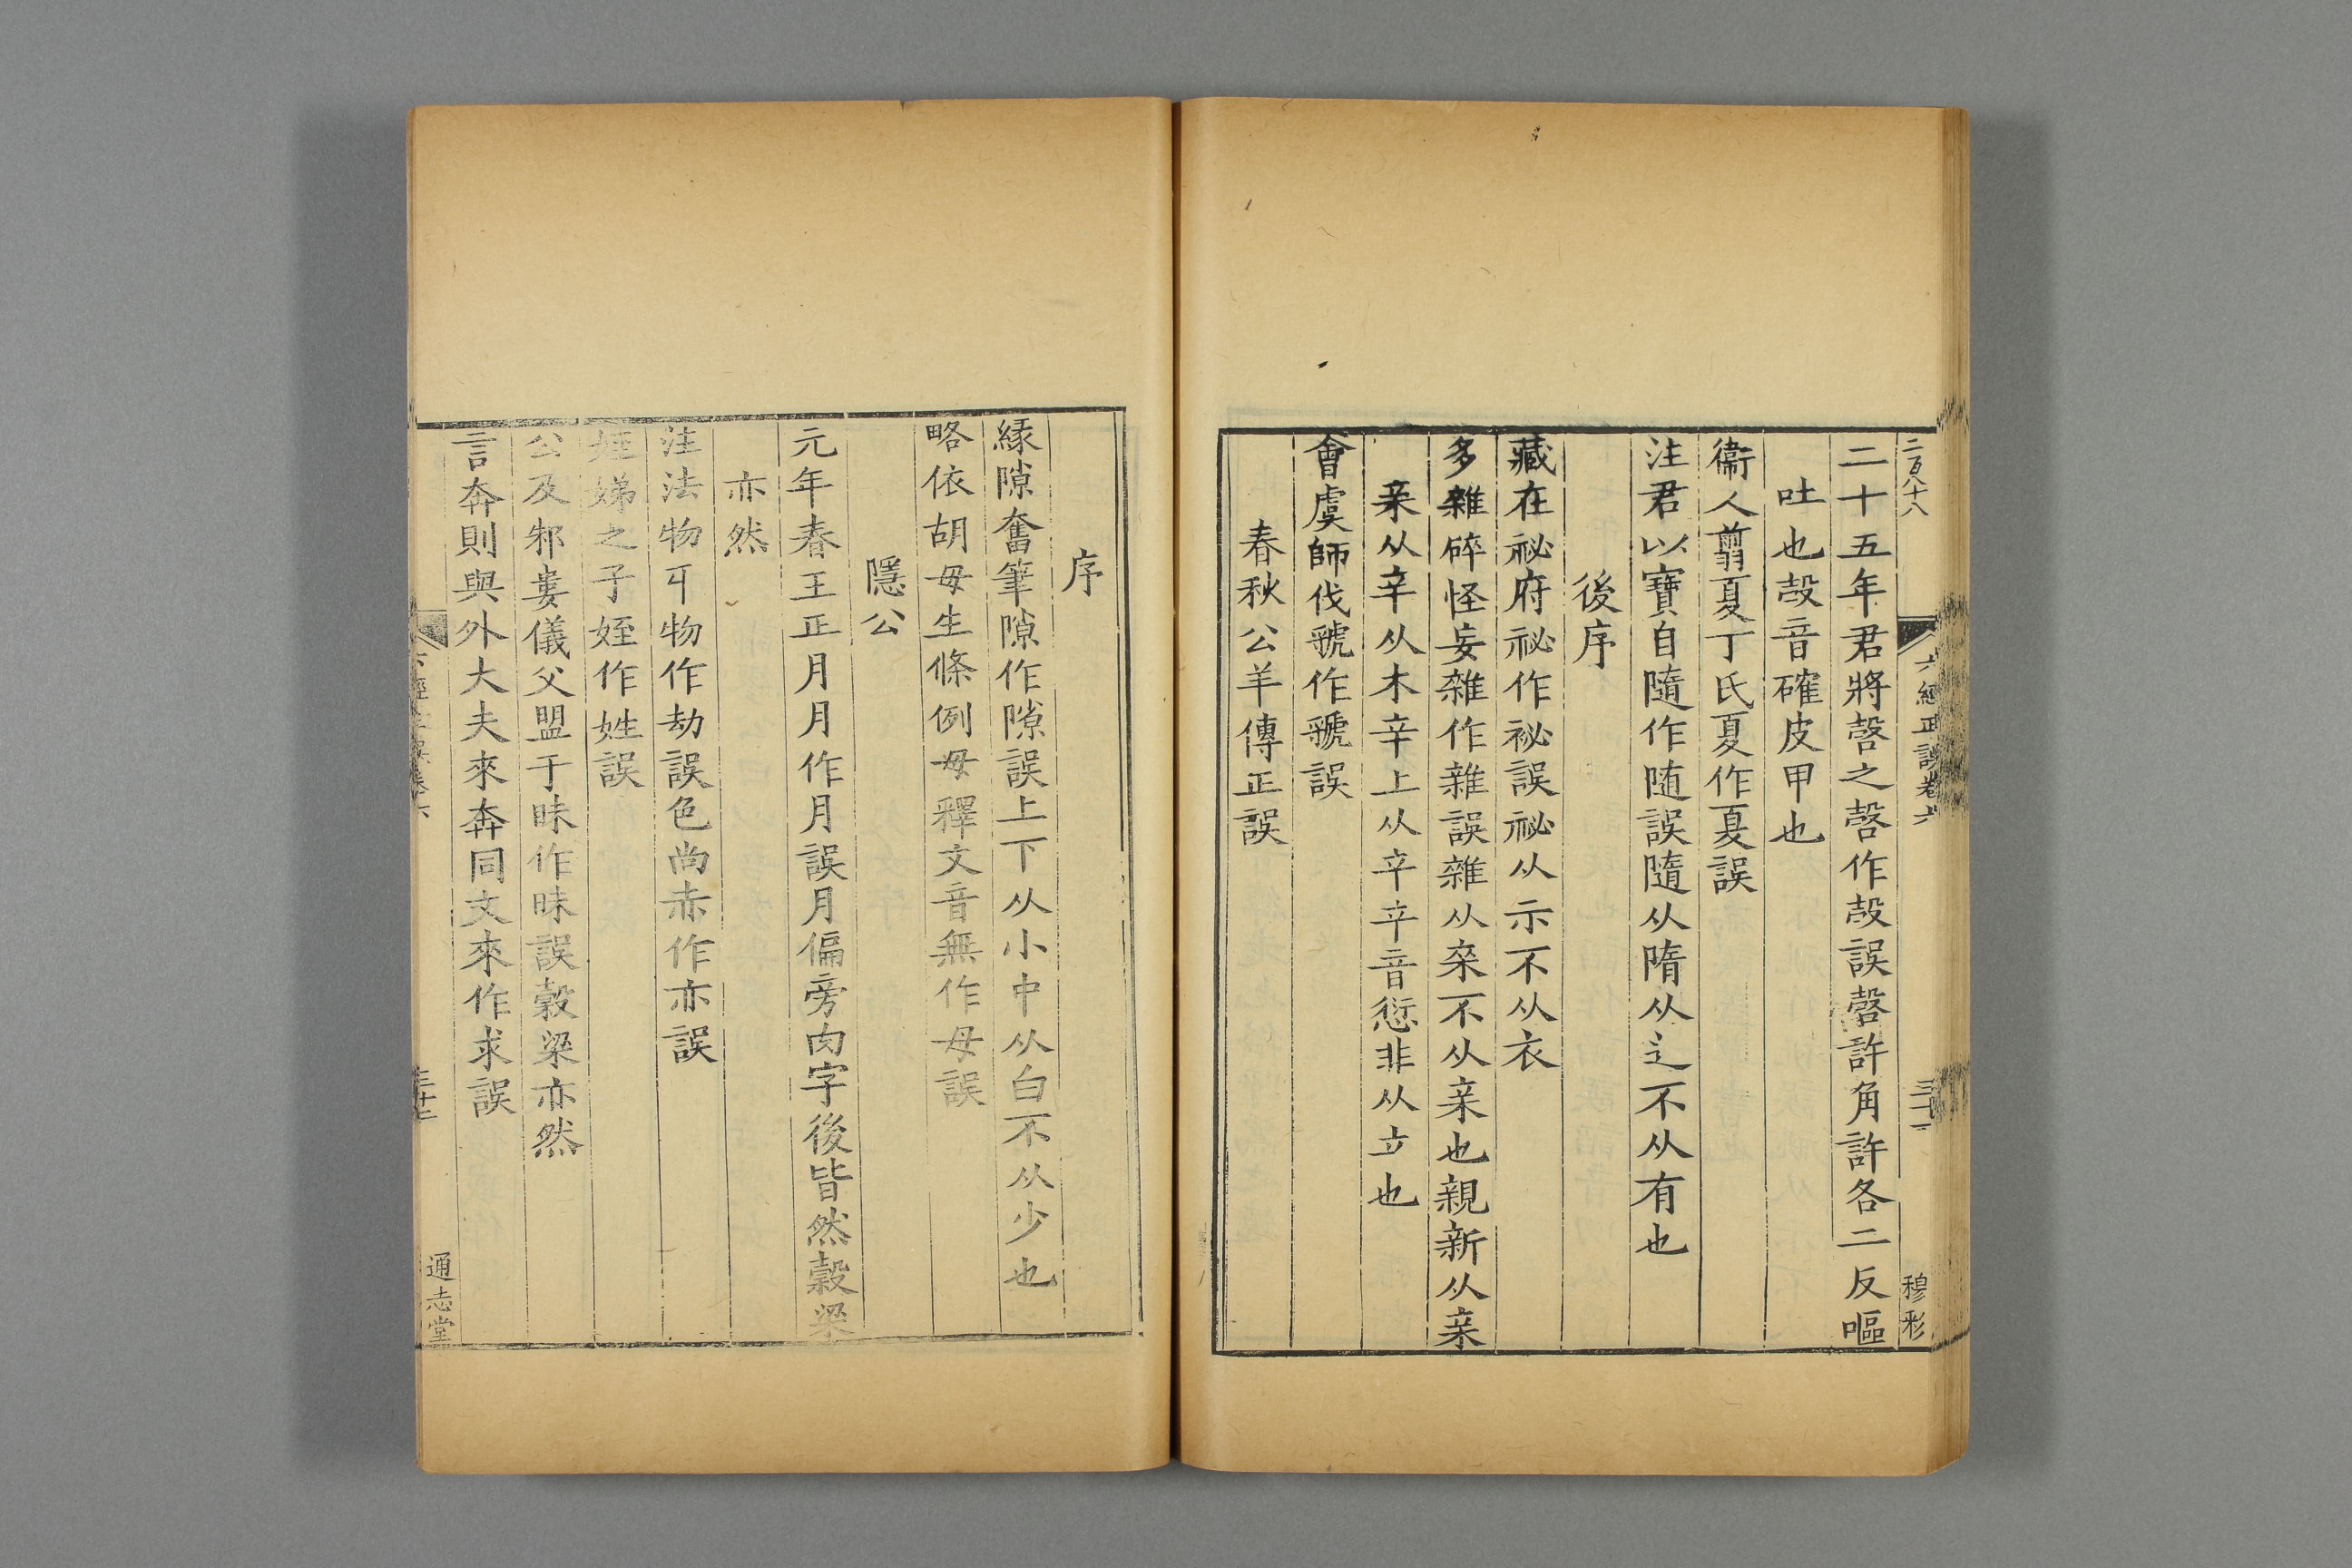 二百八十八
六經正誤卷六
穆彩
二十五年君將㱿之㱿作㱿誤㱿許角許各二反嘔
吐也㱿音確皮甲也
衞人翦夏丁氏夏作夏誤
注君以寶自隨作随誤隨从隋从辶不从有也
後序
藏在祕府祕作秘誤祕从示不从衣
多雜碎怪妄雜作雜誤雜从䘚不从亲也親新从亲
亲从辛从木辛上从䇂䇂音愆非从立也
會虞師伐虢作虢誤
春秋公羊傳正誤
序
緣隙奮筆隙作隙誤上下从小中从白不从少也
略依胡毋生條例毋釋文音無作母誤
隱公
元年春王正月月作月誤月偏旁肉字後皆然糓梁
亦然
注法物㔿物作劫誤色尚赤作亦誤
姪娣之子姪作姓誤
公及邾婁儀父盟于眛作昧誤穀梁亦然
言奔則與外大夫來奔同文來作求誤
通志堂